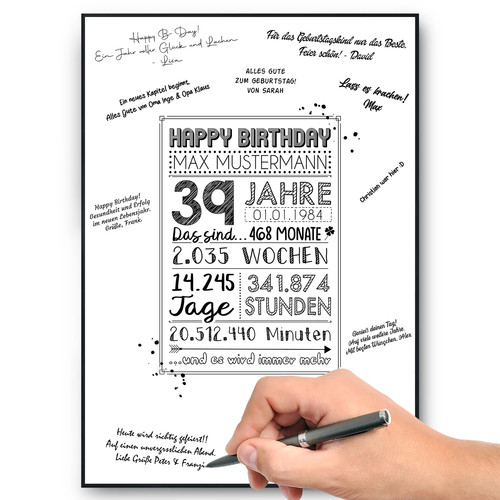 Happy B-Day!
Ein Jahr voller Glück und Lachen
- Lisa
Für das Geburtstagskind nur das Beste.
Feier schön! - David
ALLES GUTE
ZUM GEBURTSTAG!
VON SARAH
Ein neues Kapitel beginnt
Alles Gute von Oma Inge & Opa Klaus
Lass es krachen!
Max
HAPPY BIRTHDAY
MAX MUSTERMANN
39 JAHRE
01.01.1984
Das sind... 468 MONATE
2.035 WOCHEN
14.245 Tage
341.874 STUNDEN
20.512.440 Minuten
...und es wird immer mehr
Happy Birthday!
Gesundheit und Erfolg
im neuen Lebensjahr.
Grüße, Frank
Christian war hier :D
Genieß deinen Tag!
Auf viele weitere Jahre.
Mit besten Wünschen, Alex
Heute wird richtig gefeiert!!
Auf einen unvergesslichen Abend.
Liebe Grüße Peter & Franzi